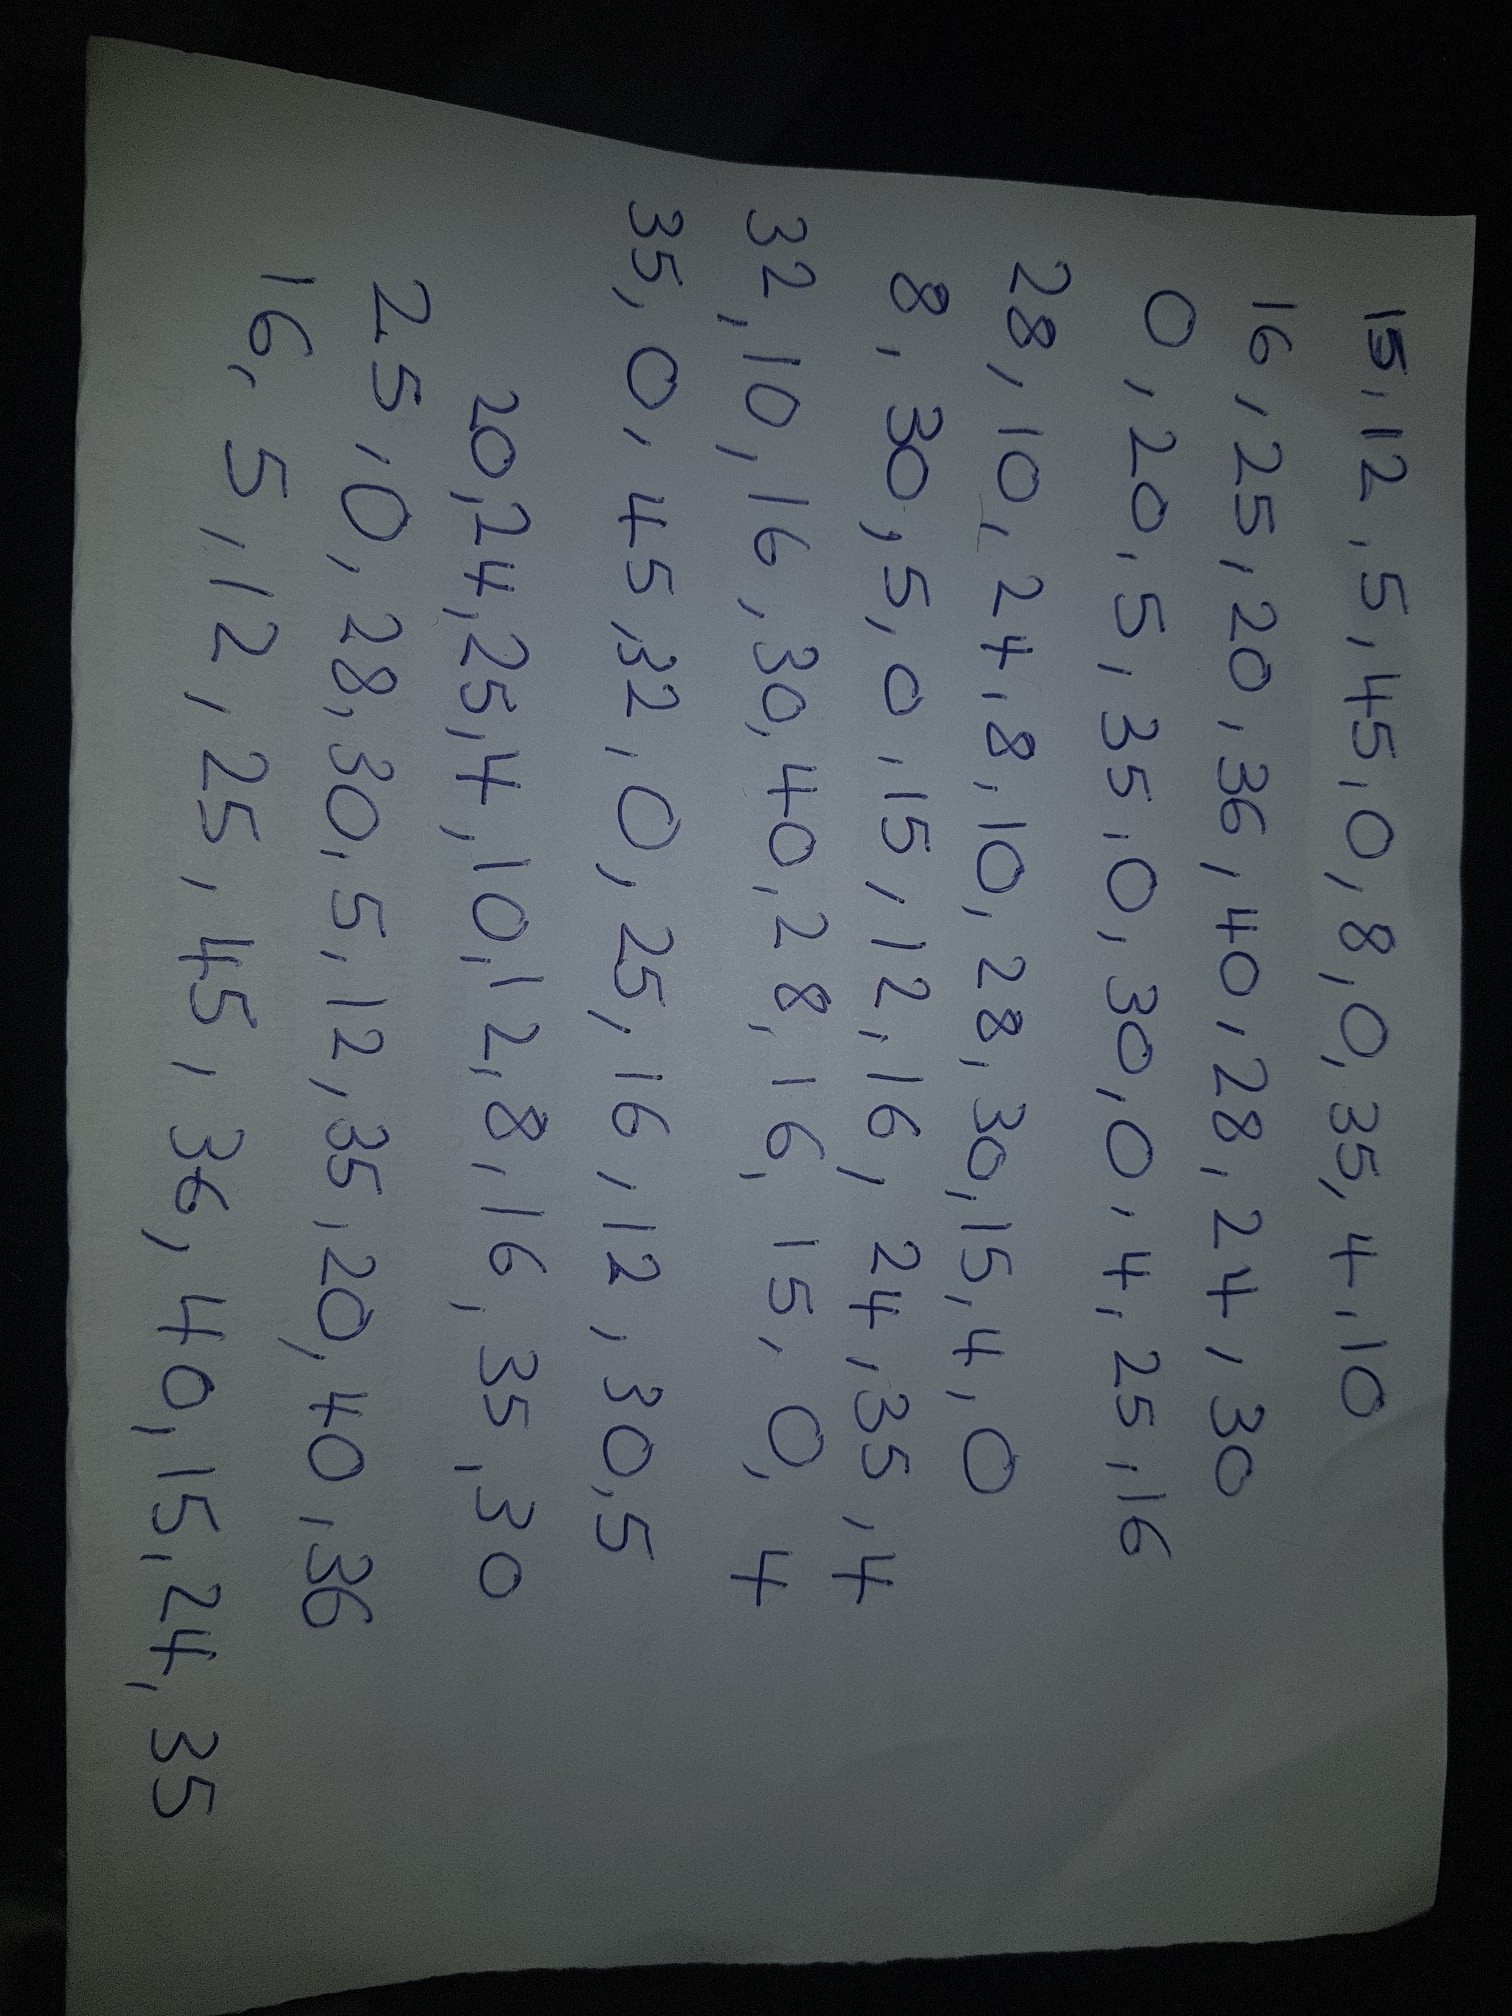 15,12,5,45,0,8,0,35,4,10
16,25,20,36,40,28,24,30
0,20,5,35,0,30,0,4,25,16
28,10,24,8,10,28,30,15,4,0
8,30,5,0,15,12,16,24,35,4
32,10,16,30,40,28,16,15,0,4
35,0,45,32,0,25,16,12,30,5
20,24,25,4,10,12,8,16,35,30
25,0,28,30,5,12,35,20,40,36
16,5,12,25,45,36,40,15,24,35